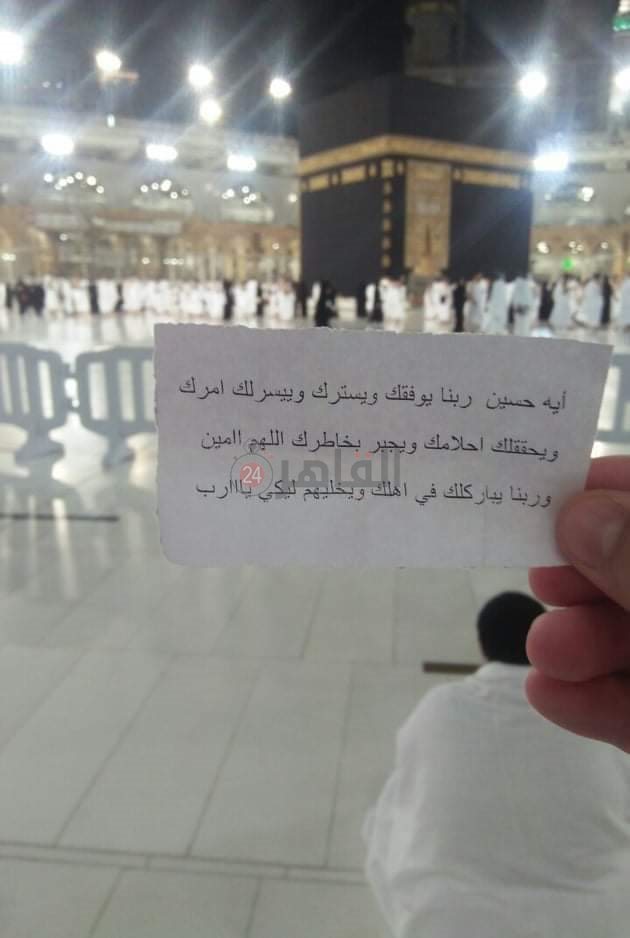 أيه حسين ربنا يوفقك ويسترك وييسرلك امرك
ويحققلك احلامك ويجبر بخاطرك اللهم اامين
القاهرة 24
وربنا يباركلك في اهلك ويخليهم ليكي يااارب